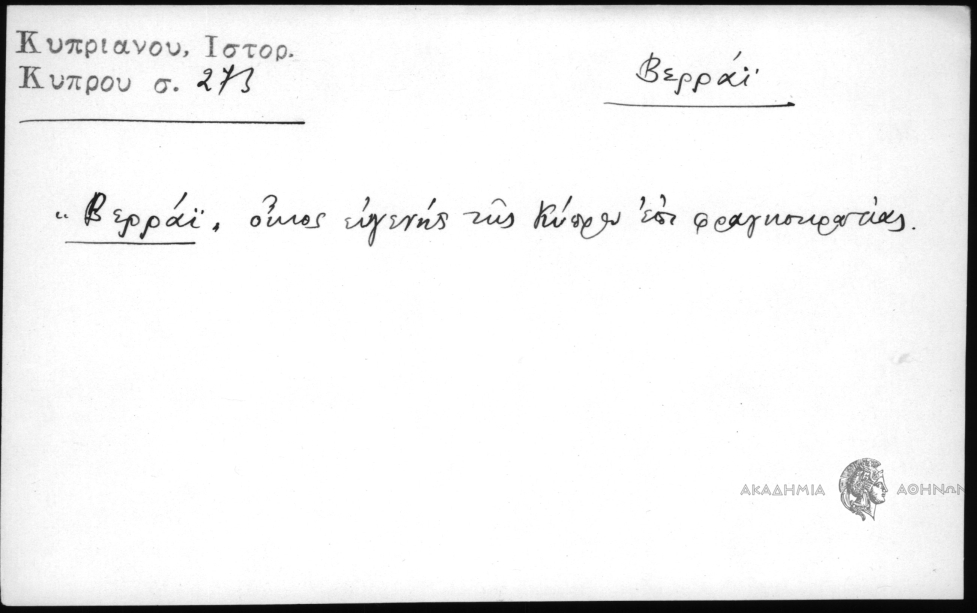 Κυπριανου, Ιστορ.
Κυπρου σ. 273
Βερράϊ
“ Βερράϊ, οἶκος εὐγενής τῆς Κύπρου ἐπι φραγκοκρατίας.
ΑΚΑΔΗΜΙΑ ΑΘΗΝΩΝ